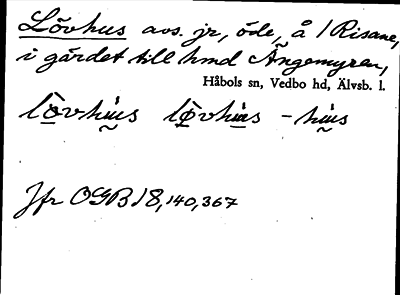 Lövhus avs. jr, öde, å 1 Risane,
i gärdet till hmd Ängemyren,
Håbols sn, Vedbo hd, Älvsb. l.
lö̀vhús lö̀vhús -hús
Jfr OGB 18, 140, 367